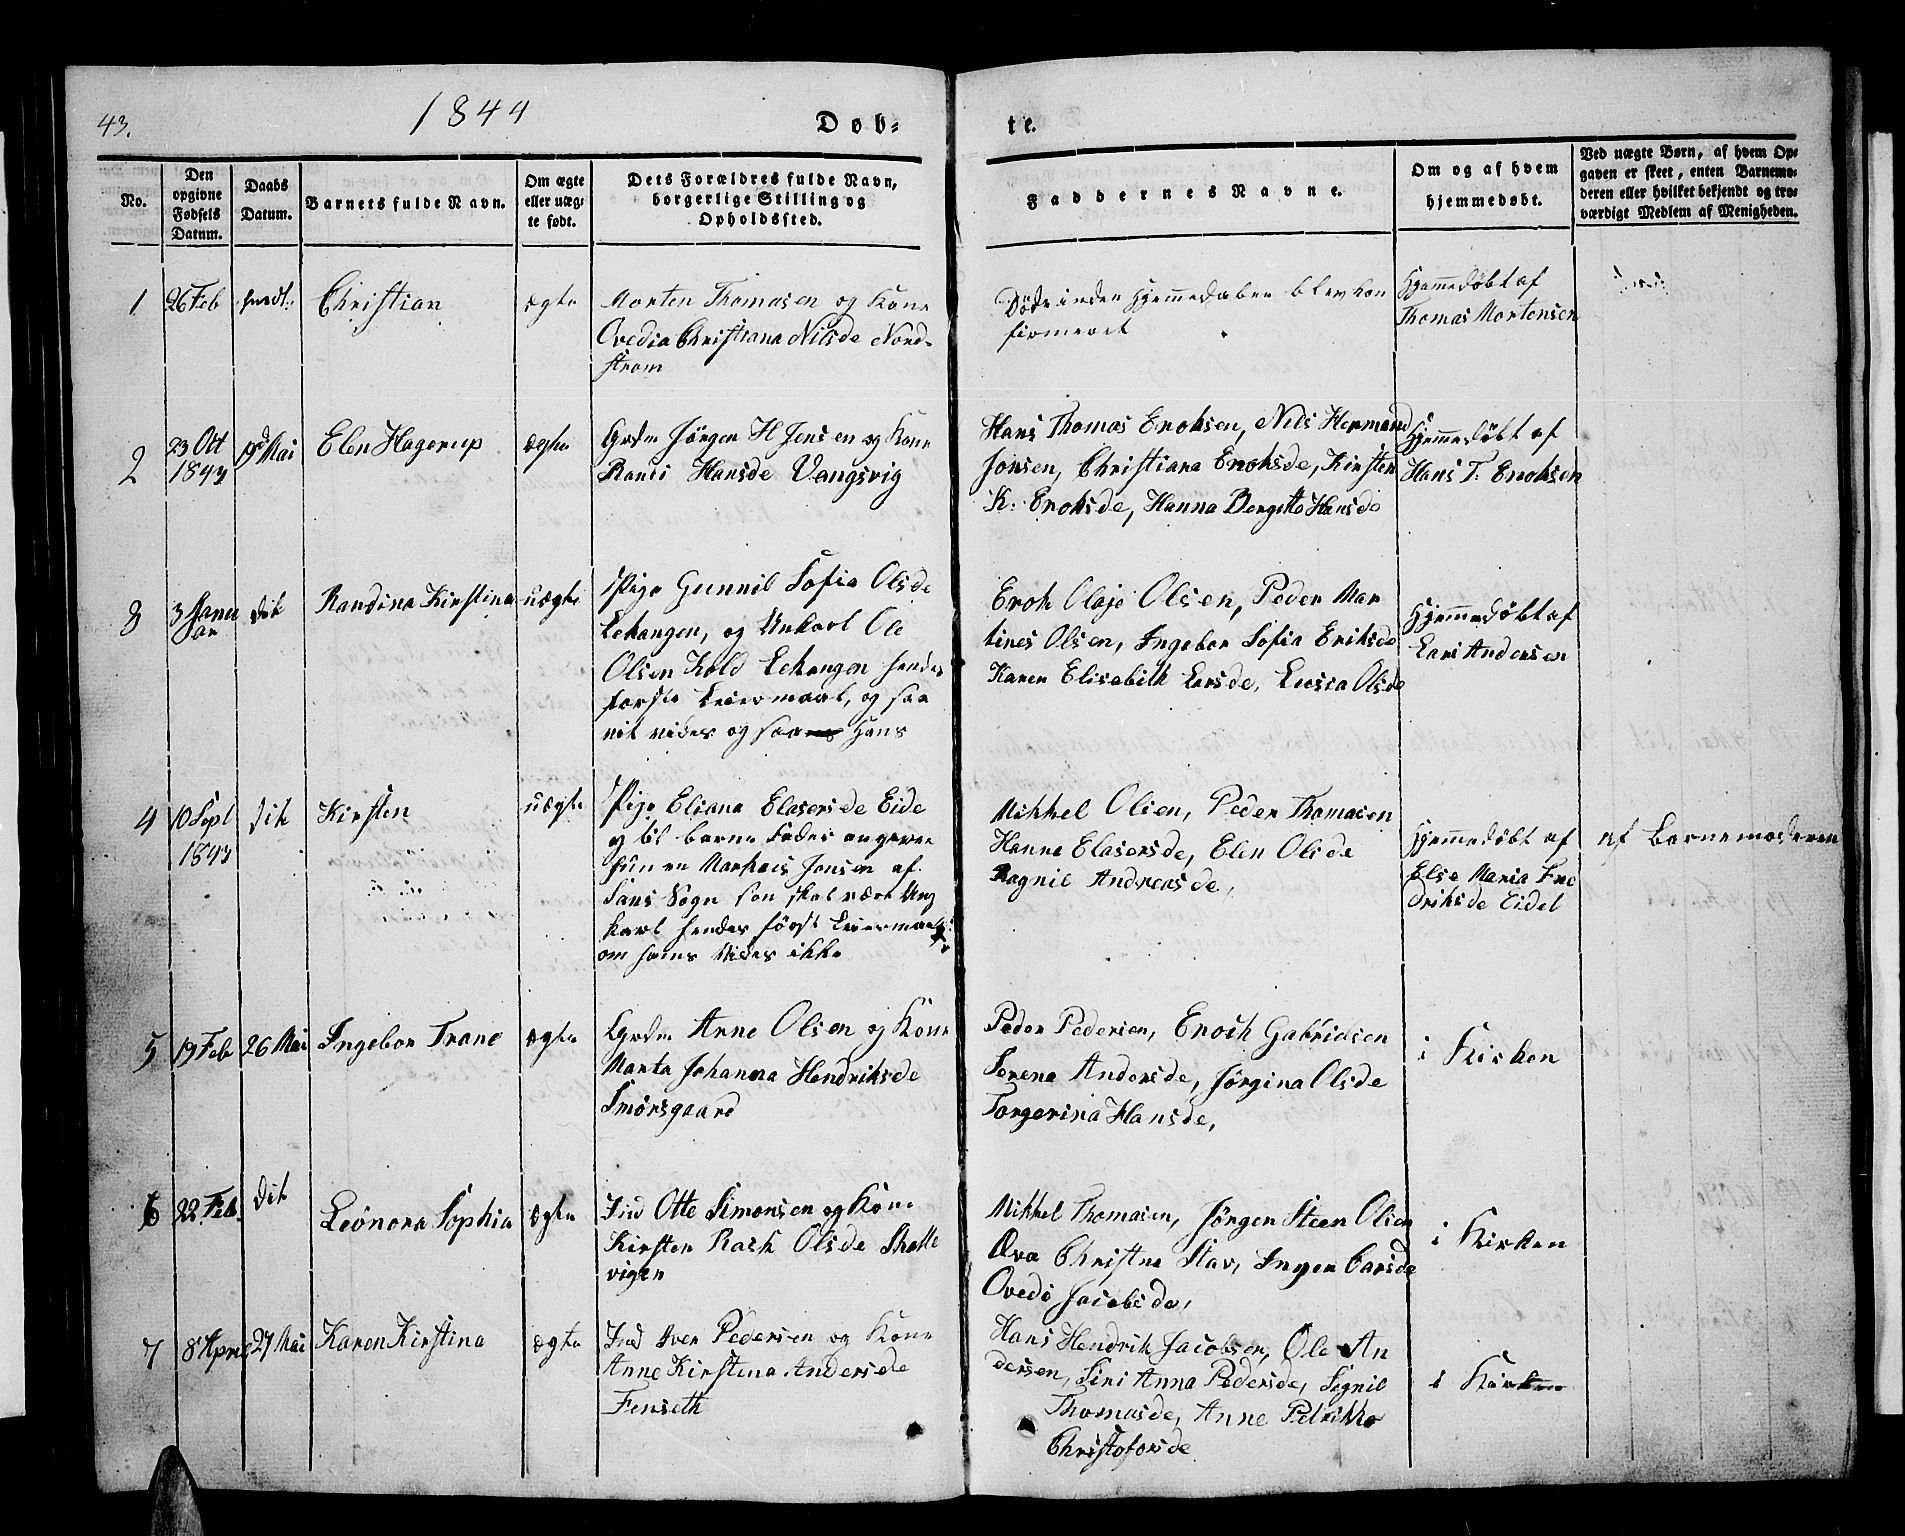 43.
1844
Døb-
te.
No.
Den
opgivne
Fødsels
Datum.
Daabs
Datum.
Barnets fulde Navn.
Om ægte
eller uæg-
te født.
Dets Forældres fulde Navn,
borgerlige Stilling og
Opholdssted.
Faddernes Navne.
Om og af hvem
hjemmedøbt.
Ved uægte Børn, af hvem Op-
gaven er skeet, enten Barnemo-
deren eller hvilket bekjendt og tro-
værdigt Medlem af Menigheden.
1
26 Feb
Christian
ægte
Morten Thomasen og Kone
Ovedia Christiana Nilsde Nord-
strøm
Døde inden Hjemmedaaben blev kon
firmeret
Hjemmedøbt af
Thomas Mortensen
2
23 Oct
1843
19d Mai
Elen Hagerup
ægte
Grdm Jørgen H Jensen og Kone
Randi Hansde Vangsvig
Hans Thomas Enoksen, Nils Hermand
Jonsen, Christiana Enoksde, Kirsten
K: Enoksde, Hanna Bergitte Hansde
Hjemmedøbt af
Hans T. Enoksen
3
3 Janu
ar
dit
Randina Kirstina
uægte
Pige Gunnil Sofia Olsde
Lekangen, og Unkarl Ole
Olsen Kold Lekangen hendes
første Leiermaal, og saa
vit vides og saa Hans
Enok Olaje Olsen, Peder Mar
tines Olsen, Ingebor Sofia Eriksde
Karen Elisabith Larsde, Lusia Olsde
Hjemmedøbt af
Lars Andersen
4
10 Sept
1843
dit
Kirsten
uægte
Pige Eliana Elasersde Eide
og til barne Fader angiver
hun en Markus Jonsen af
Sans Sogn son skal være Ung
karl hendes først Leiermaal
om hans Vides ikke
Mikkel Olsen, Peder Thomasen
Hanna Elasersde, Elen Olsde
Ragnil Andreasde,
Hjemmedøbt af
Else Maria Fre
driksde Eidet
af Barnemoderen
5
19 Feb
26 Mai
Ingebor Trane
ægte
Grdm Arne Olsen og Kone
Marta Johanna Hendriksde
Smørsgaard
Peder Pedersen, Enoch Gabrielsen
Serena Andersde, Jørgina Olsde
Torgerina Hansde,
i Kirken
6
22 Feb.
dit
Leonora Sophia
ægte
Ind Otte Simonsen og Kone
Kirsten Rask Olsde Skatt
vigen
Mikkel Thomasen, Jørgen Steen Olsen
Ova Christne Stav, Inger Larsde
Ovede Jacobsde,
i Kirken
7
8 April
27 Mai
Karen Kirstina
ægte
Ind Iver Pedersen og Kone
Anne Kirstina Andersde
Fenseth
Hans Hendrik Jacobsen, Ole An
dersen, Siri Anna Pedersde, Signil
Thomasde, Anne Petrikka
Christofersde
i Kirken